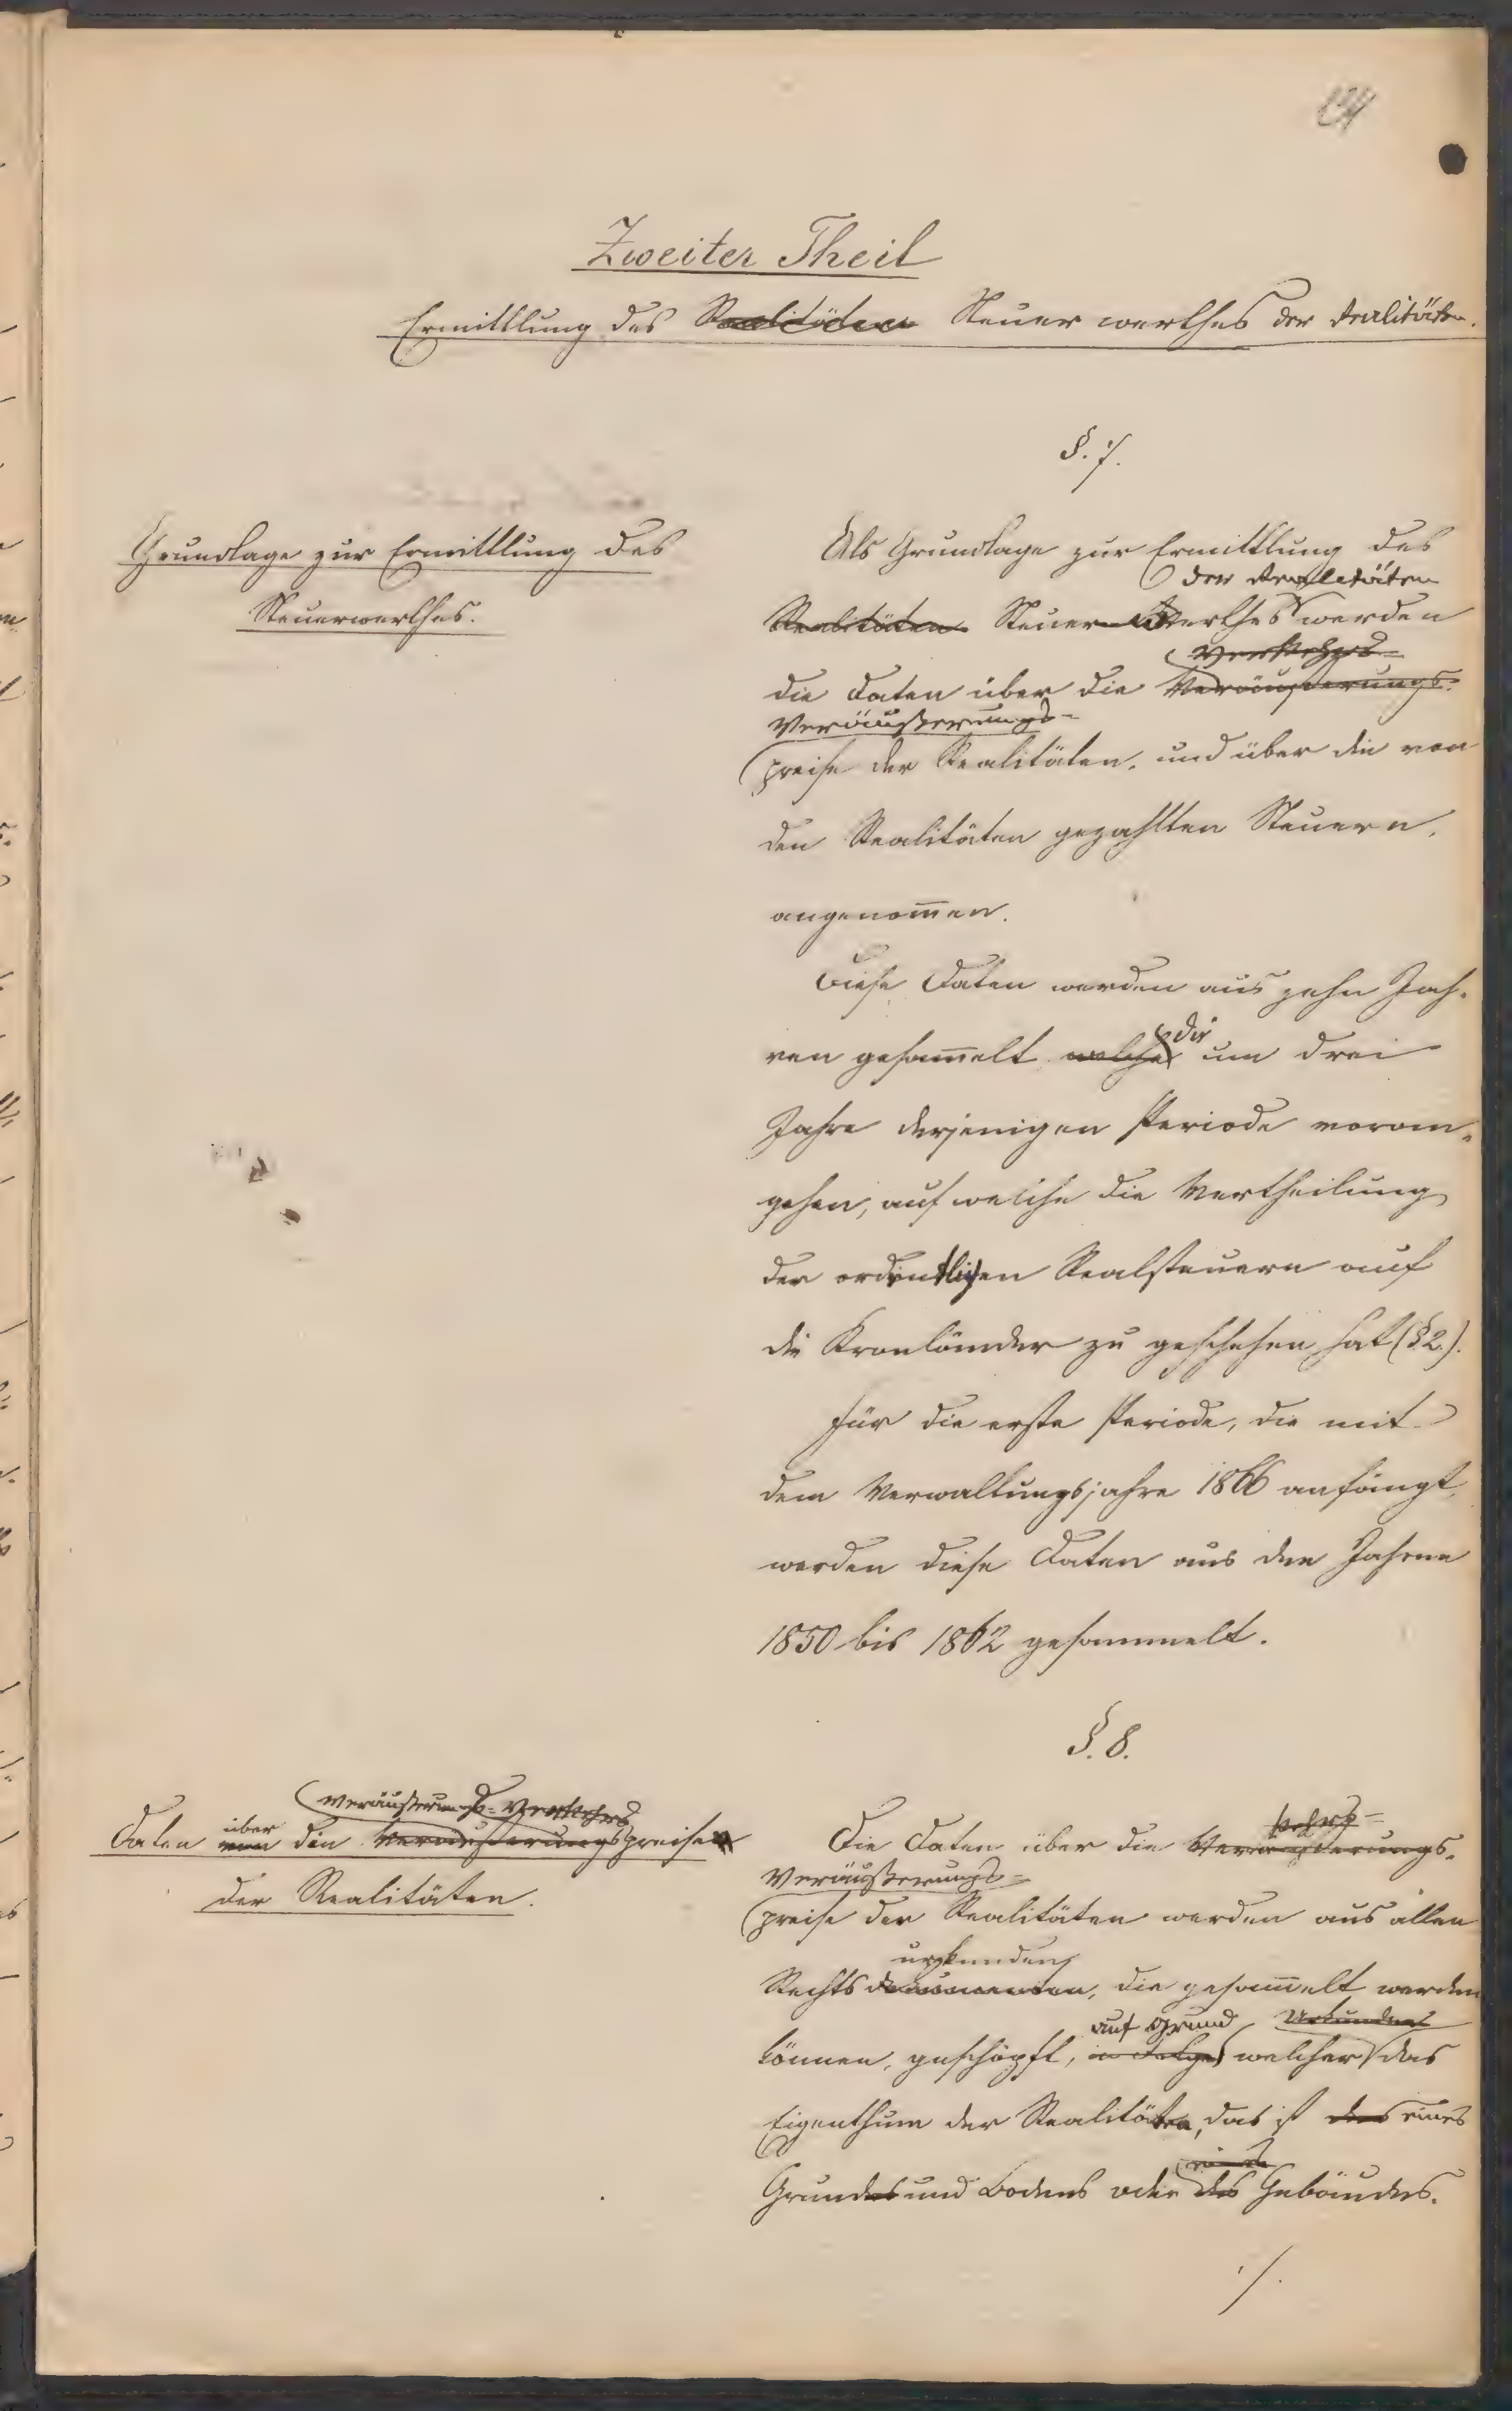 Zweiter Theil
Ermittlung des Realitäten Steuerwerthes der Realitäten.
§. 7.
Grundlage zur Ermittlung des
Steuerwerthes.
Als Grundlage zur Ermittlung des
der Realitäten
Realitäten Steuer Werthes werden
Verkehrs-
die Daten über die Veräußerungs-
Veräußerungs-
preise der Realitäten, und über die von
den Realitäten gezahlten Steuern,
angenom̄en.
Diese Daten werden aus zehn Jah-
die
ren gesam̄elt welche um drei
Jahre derjenigen Periode voran-
gehen, auf welche die Vertheilung
der ordentlichen Realsteuern auf
die Kronländer zu geschehen hat (§ 2.).
Für die erste Periode, die mit
dem Verwaltungsjahre 1866 anfängt,
werden diese Daten aus den Jahren
1850 bis 1862 gesammelt.
§. 8.
Veräußerungs- Verkehrs
über
Daten von den Veräußerungspreisen
der Realitäten.
kehrs-
Die Daten über die Veräußerungs-
Veräußerungs-
preise der Realitäten werden aus allen
urkunden
Rechtsdocumenten, die gesam̄elt werden
auf Grund Urkunden
können, geschöpft, in Folge welcher das
Eigenthum der Realitäten, das ist des eines
eines
Grundes und Bodens oder des Gebäudes.
./.